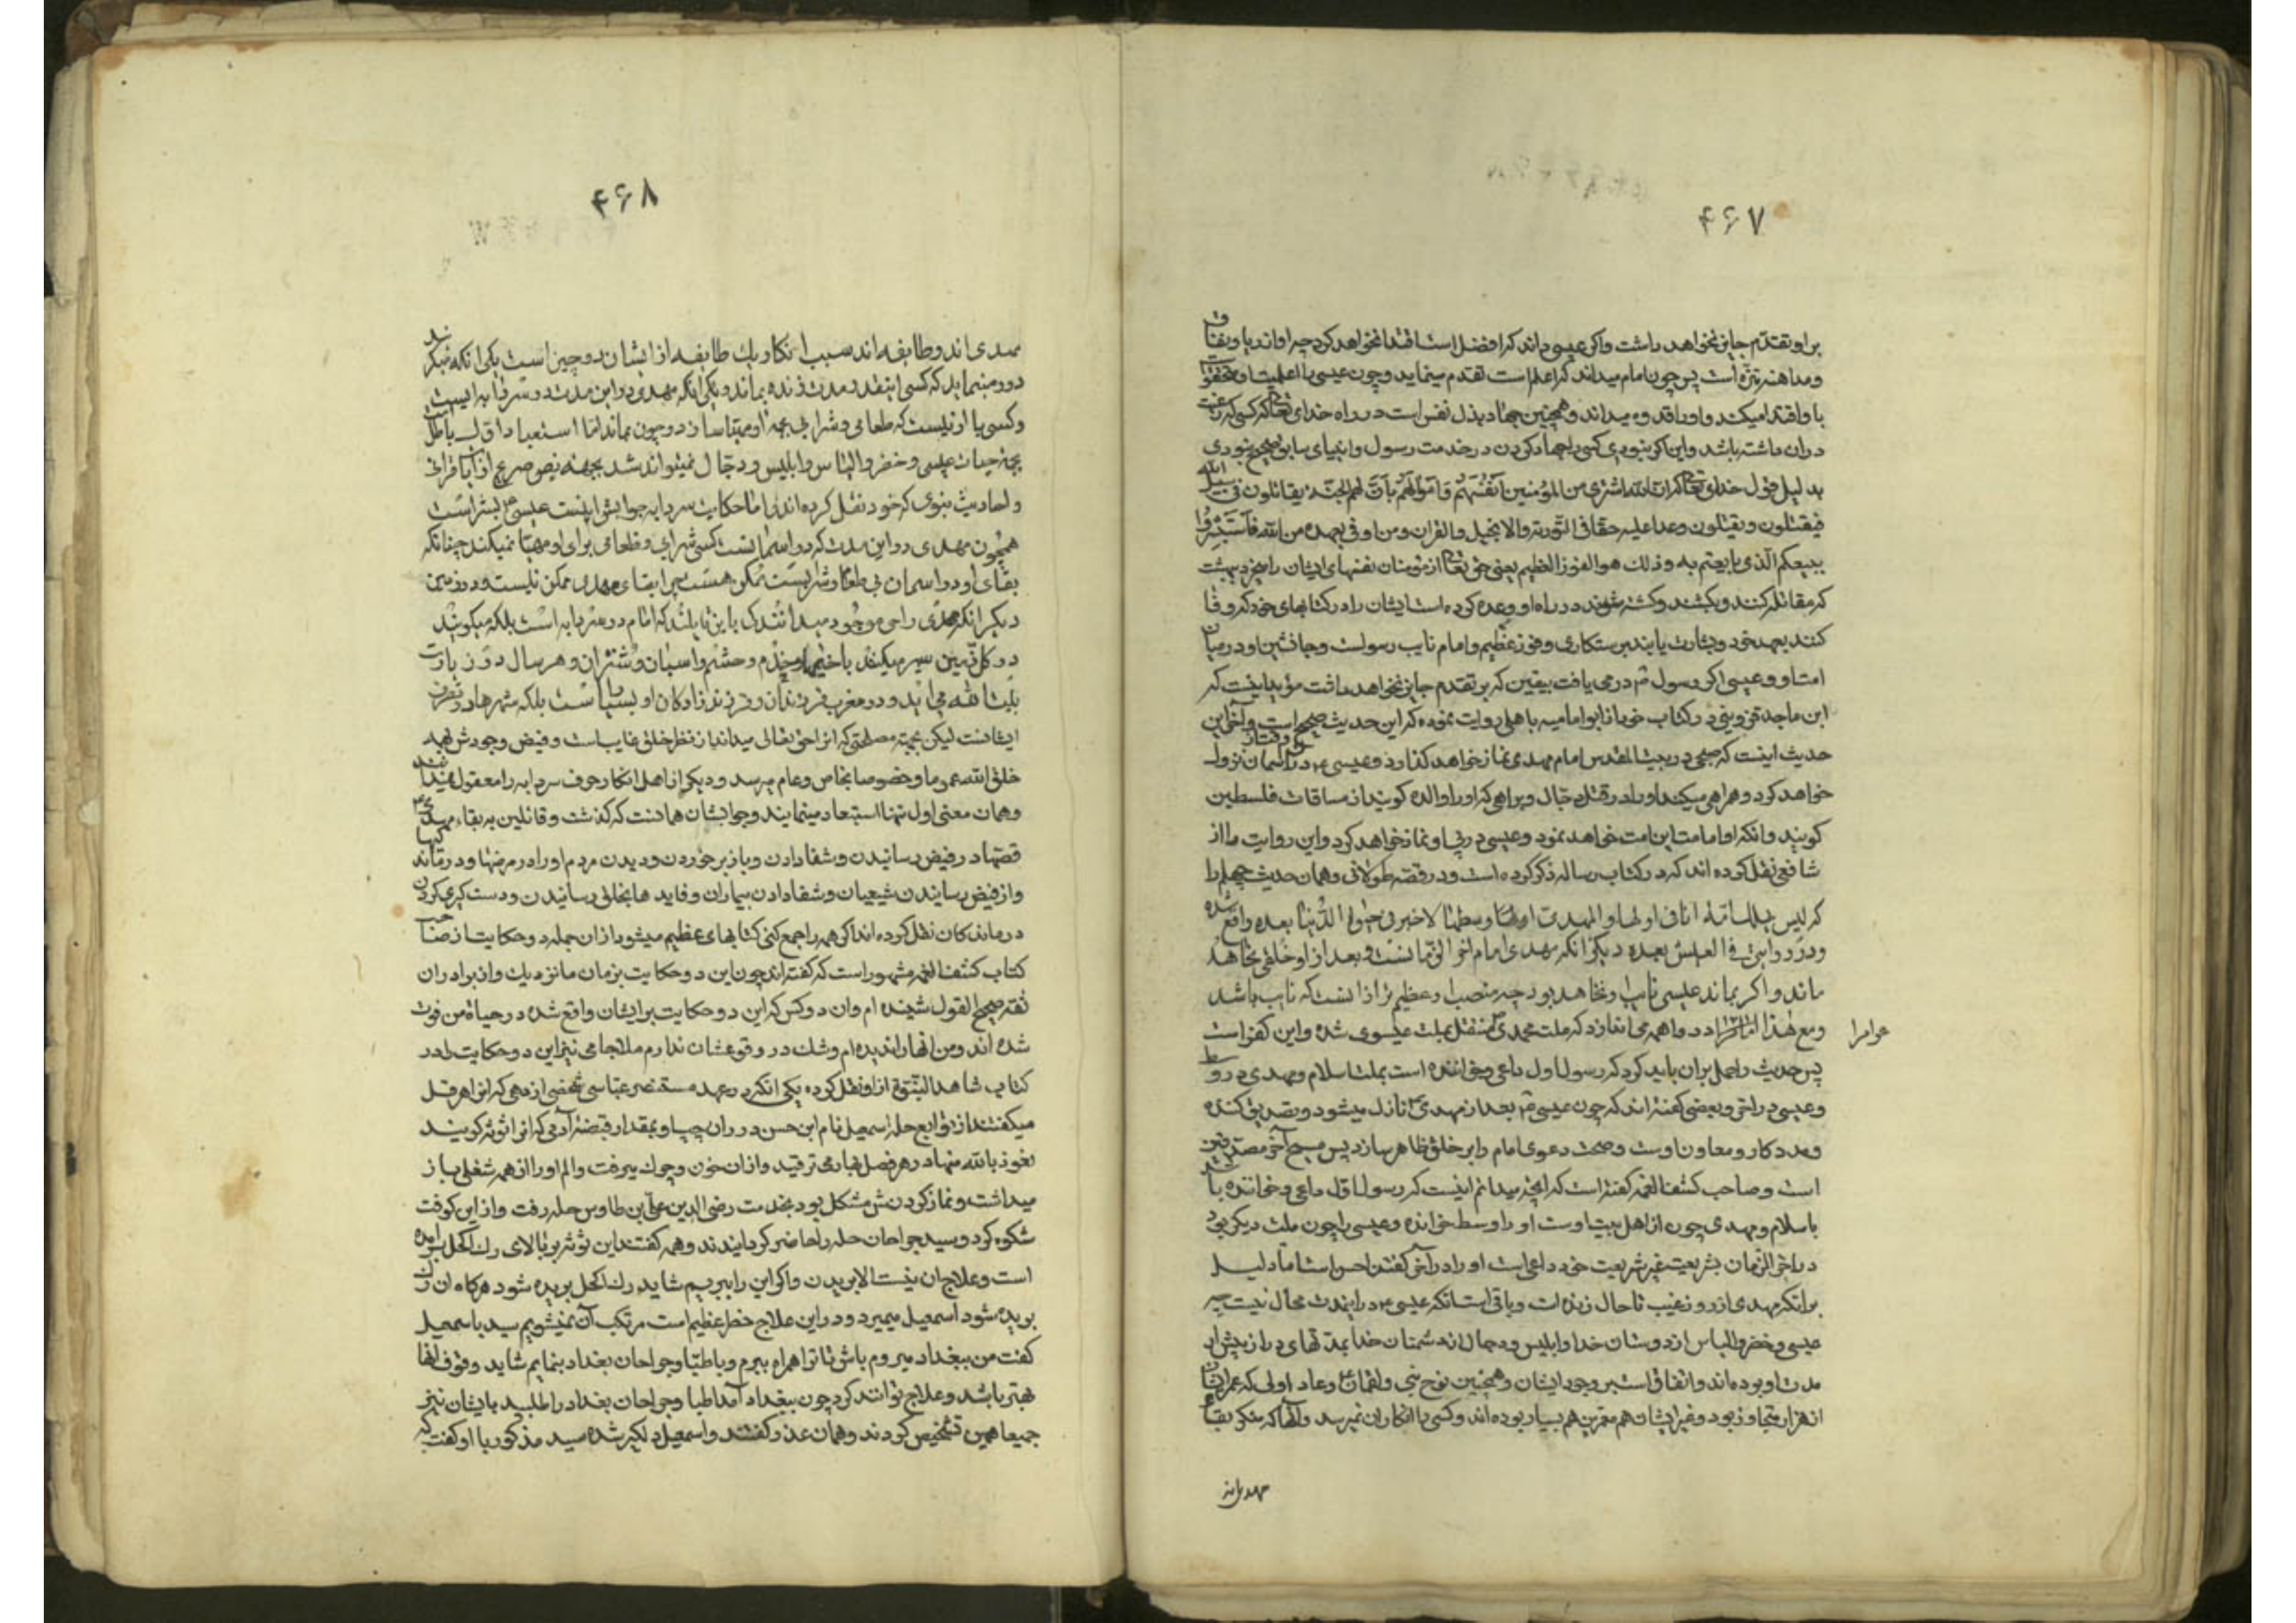 ۴۶۷
بر او تقدم جایز نخواهد داشت واکر عیسی داند که افضل است اقتدا نخواهد کرد چه او از ریا و نفاق
ومداهنه منزه است پس چون امام میداند که اعلم است تقدم مینماید وچون عیسی با اعلمیت او
با واقتدا میکند واورا قدوه میداند وهمچنین جهاد بذل نفس است در راه خدای تعالی که کسی که رغبت
دران داشته باشد واین اکر نبودی کسی را جهاد کردن در خدمت رسول وانبیای سابق صحیح نبودی
بدلیل قول خدای تعالی که ان الله اشتری من المؤمنین انفسهم واموالهم بان لهم الجنة یقاتلون فی سبیل الله
فیقتلون ویقتلون وعدا علیه حقا فی التوریة والانجیل والقران ومن اوفی بعهده من الله فاستبشروا
ببیعکم الذی بایعتم به وذلک هو الفوز العظیم یعنی حق تعالی از مؤمنان نفسهای ایشان را میخرد ببهشت
که مقاتله کنند وبکشند وکشته شوند در راه او ووعده کرده است ایشان را در کتابهای خود که وفا
کنند بعهد خود وبشارت یابند برستکاری وفوز عظیم وامام نایب رسولست وجانشین او در میان
امت او وعیسی اکر رسول را در می یافت بیقین که بر تقدم جایز نخواهد داشت مؤید اینست که
ابن ماجه قزوینی در کتاب خود از ابو امامه باهلی روایت نموده که این حدیث صحیح است وآخر این
حدیث اینست که صبحی در بیت المقدس امام مهدی نماز خواهد کذارد وعیسی در از آسمان نزول
خواهد کرد وهمراهی میکند او را در قتل دجال وبراهی که او را والده کویند از مسافات فلسطین
کویند وانکه او امامت این امت خواهد نمود وعیسی در پی او نماز خواهد کرد واین روایت را از
شافعی نقل کرده اند که در کتاب رساله ذکر کرده است ودر قصه طولانی وهمان حدیث چهلم را
که انا فی اولها والمهدی اوسطها لا خیر فی حیوة الدنیا بعده واقع شده
ودر روایتی فی العیش بعده دیکر انکه مهدی امام اخر الزمانست وبعد از او خلقی نخواهد
ماند واکر بماند عیسی نایب او نخواهد بود چه منصب او عظیم تر از انست که نایب باشد
ومع هذا در واهمه می اندازد که ملت محمدی منتقل بملت عیسوی شده واین کفر است
عوام را
پس حدیث را حمل بران باید کرد که رسول اول داعی وخواننده است بملت اسلام ومهدی در وسط
وعیسی در اخر وبعضی کفته اند که چون عیسی بعد از مهدی نازل میشود وتصدیق کننده
ومددکار ومعاون اوست وصحت دعوی امام را بر خلق ظاهر سازد پس مسیح آخر مصدقین
است وصاحب کشف الغمه کفته است که انچه میدانم اینست که رسول اول داعی وخواننده باشد
باسلام ومهدی چون از اهل بیت اوست او را وسط خوانده وعیسی را چون ملت دیکر بود
در اخر الزمان بشریعت غیر شریعت خود داعی است او را در آخر کفتن احسن است اما دلیل
برانکه مهدی از روز غیب تا حال زنده است وباقی است انکه عیسی در اینمدت محال نیست چه
عیسی وخضر والیاس از دوستان خدا وابلیس ودجال از دشمنان خدا بمدتهای دراز پیش از
مدت او بوده اند واتفاق است بر وجود ایشان وهمچنین نوح نبی ولقمان وعاد اولی که عمر ایشان
از هزار متجاوز بود وغیر ایشان هم معمرین هم بسیار بوده اند وکسی را انکار ان نمیرسد وآنها که منکر بقاء
مهدی اند
۴۶۸
مهدی اند دو طایفه اند سبب انکار یک طایفه از ایشان دو چیز است یکی انکه میکویند
دور مینماید که کسی اینقدر مدت زنده بماند ویکی انکه مهدی در این مدت در سردابه ایست
وکسی با او نیست که طعامی وشرابی بجهة او مهیا سازد وچون بماند اما استبعاد اول باطل است
بجهة حیات عیسی وخضر والیاس وابلیس ودجال نمیتواند شد بجهة نص صریح از آیات قرانی
واحادیث نبوی که خود نقل کرده اند واما حکایت سردابه جوابش اینست عیسی بشر است
همچون مهدی ودر این مدت که در اسمانست کسی شرابی وطعامی برای او مهیا نمیکند چنانکه
بقای او در اسمان بی طعام وشراب ممکن هست چرا بقای مهدی ممکن نیست ودر زمین
دیکر انکه مهدی را حی موجود میدانند کی باین قایلند که امام در سردابه است بلکه میکویند
در کل زمین سیر میکند با خیمها وخدم وحشم واسبان وشتران وهر سال در زیارت
بیت الله می آید ودر مغرب فرزندان وفرزندزادکان او بسیار است بلکه شهرها در تصرف
ایشانست لیکن بجهة مصلحتی که انرا حق تعالی میداند از نظر خلق غایب است وفیض وجودش بهمه
خلق الله عموما وخصوصا بخاص وعام میرسد ودیکر از اهل انکار حرف سردابه را معقول نمیدانند
وهمان معنی اول تنها استبعاد مینمایند وجواب ایشان همانست که کذشت وقائلین به بقاء مهدی
قصها در فیض رسانیدن وشفا دادن وباز بر خوردن ودیدن مردم او را در مرضها ودر ماندکیها
واز فیض رسانیدن شیعیان وشفا دادن بیماران وفایدها بخلق رسانیدن ودست کیری کردن
درماندکان نقل کرده اند اکر همه را جمع کنی کتابهای عظیم میشود از ان جمله دو حکایت از صاحب
کتاب کشف الغمه مشهور است که کفته اند چون این دو حکایت بزمان ما نزدیک واز برادران
ثقه صحیح القول شنیده ام وان دو کس که این دو حکایت بر ایشان واقع شده در حیاة من فوت
شده اند ومن انها را ندیده ام وشک در وقوعشان ندارم ملا جامی نیز این دو حکایت را در
کتاب شاهد النبوة از او نقل کرده یکی انکه در عهد مستنصر عباسی شخصی از دهی که انرا هرقل
میکفتند از توابع حله اسمعیل نام ابن حسن در ران چپ او بمقدار قبضه آدمی که انرا توثه کویند
نعوذ بالله منها در هر فصل بهار می ترقید واز ان خون وچرک میرفت والم او را از همه شغلی باز
میداشت ونماز کردنش مشکل بود بخدمت رضی الدین علی بن طاوس حله رفت واز این کوفت
شکوه کرد وسید جراحان حله را حاضر کردانیدند وهمه کفتند این توثه بر بالای رک اکحل برآمده
است وعلاج ان نیست الا بریدن واکر این را ببریم شاید رک اکحل بریده شود هرکاه ان رک
بریده شود اسمعیل میمیرد ودر این علاج خطر عظیم است مرتکب آن نمیشویم سید باسمعیل
کفت من ببغداد میروم باش تا ترا همراه ببرم وباطبا وجراحان بغداد بنمایم شاید وقوف انها
بهتر باشد وعلاج توانند کرد چون ببغداد آمد اطبا وجراحان بغداد را طلبید بایشان نیز
جمیعا همین تشخیص کردند وهمان عذر کفتند واسمعیل دلکیر شده سید مذکور با او کفت که